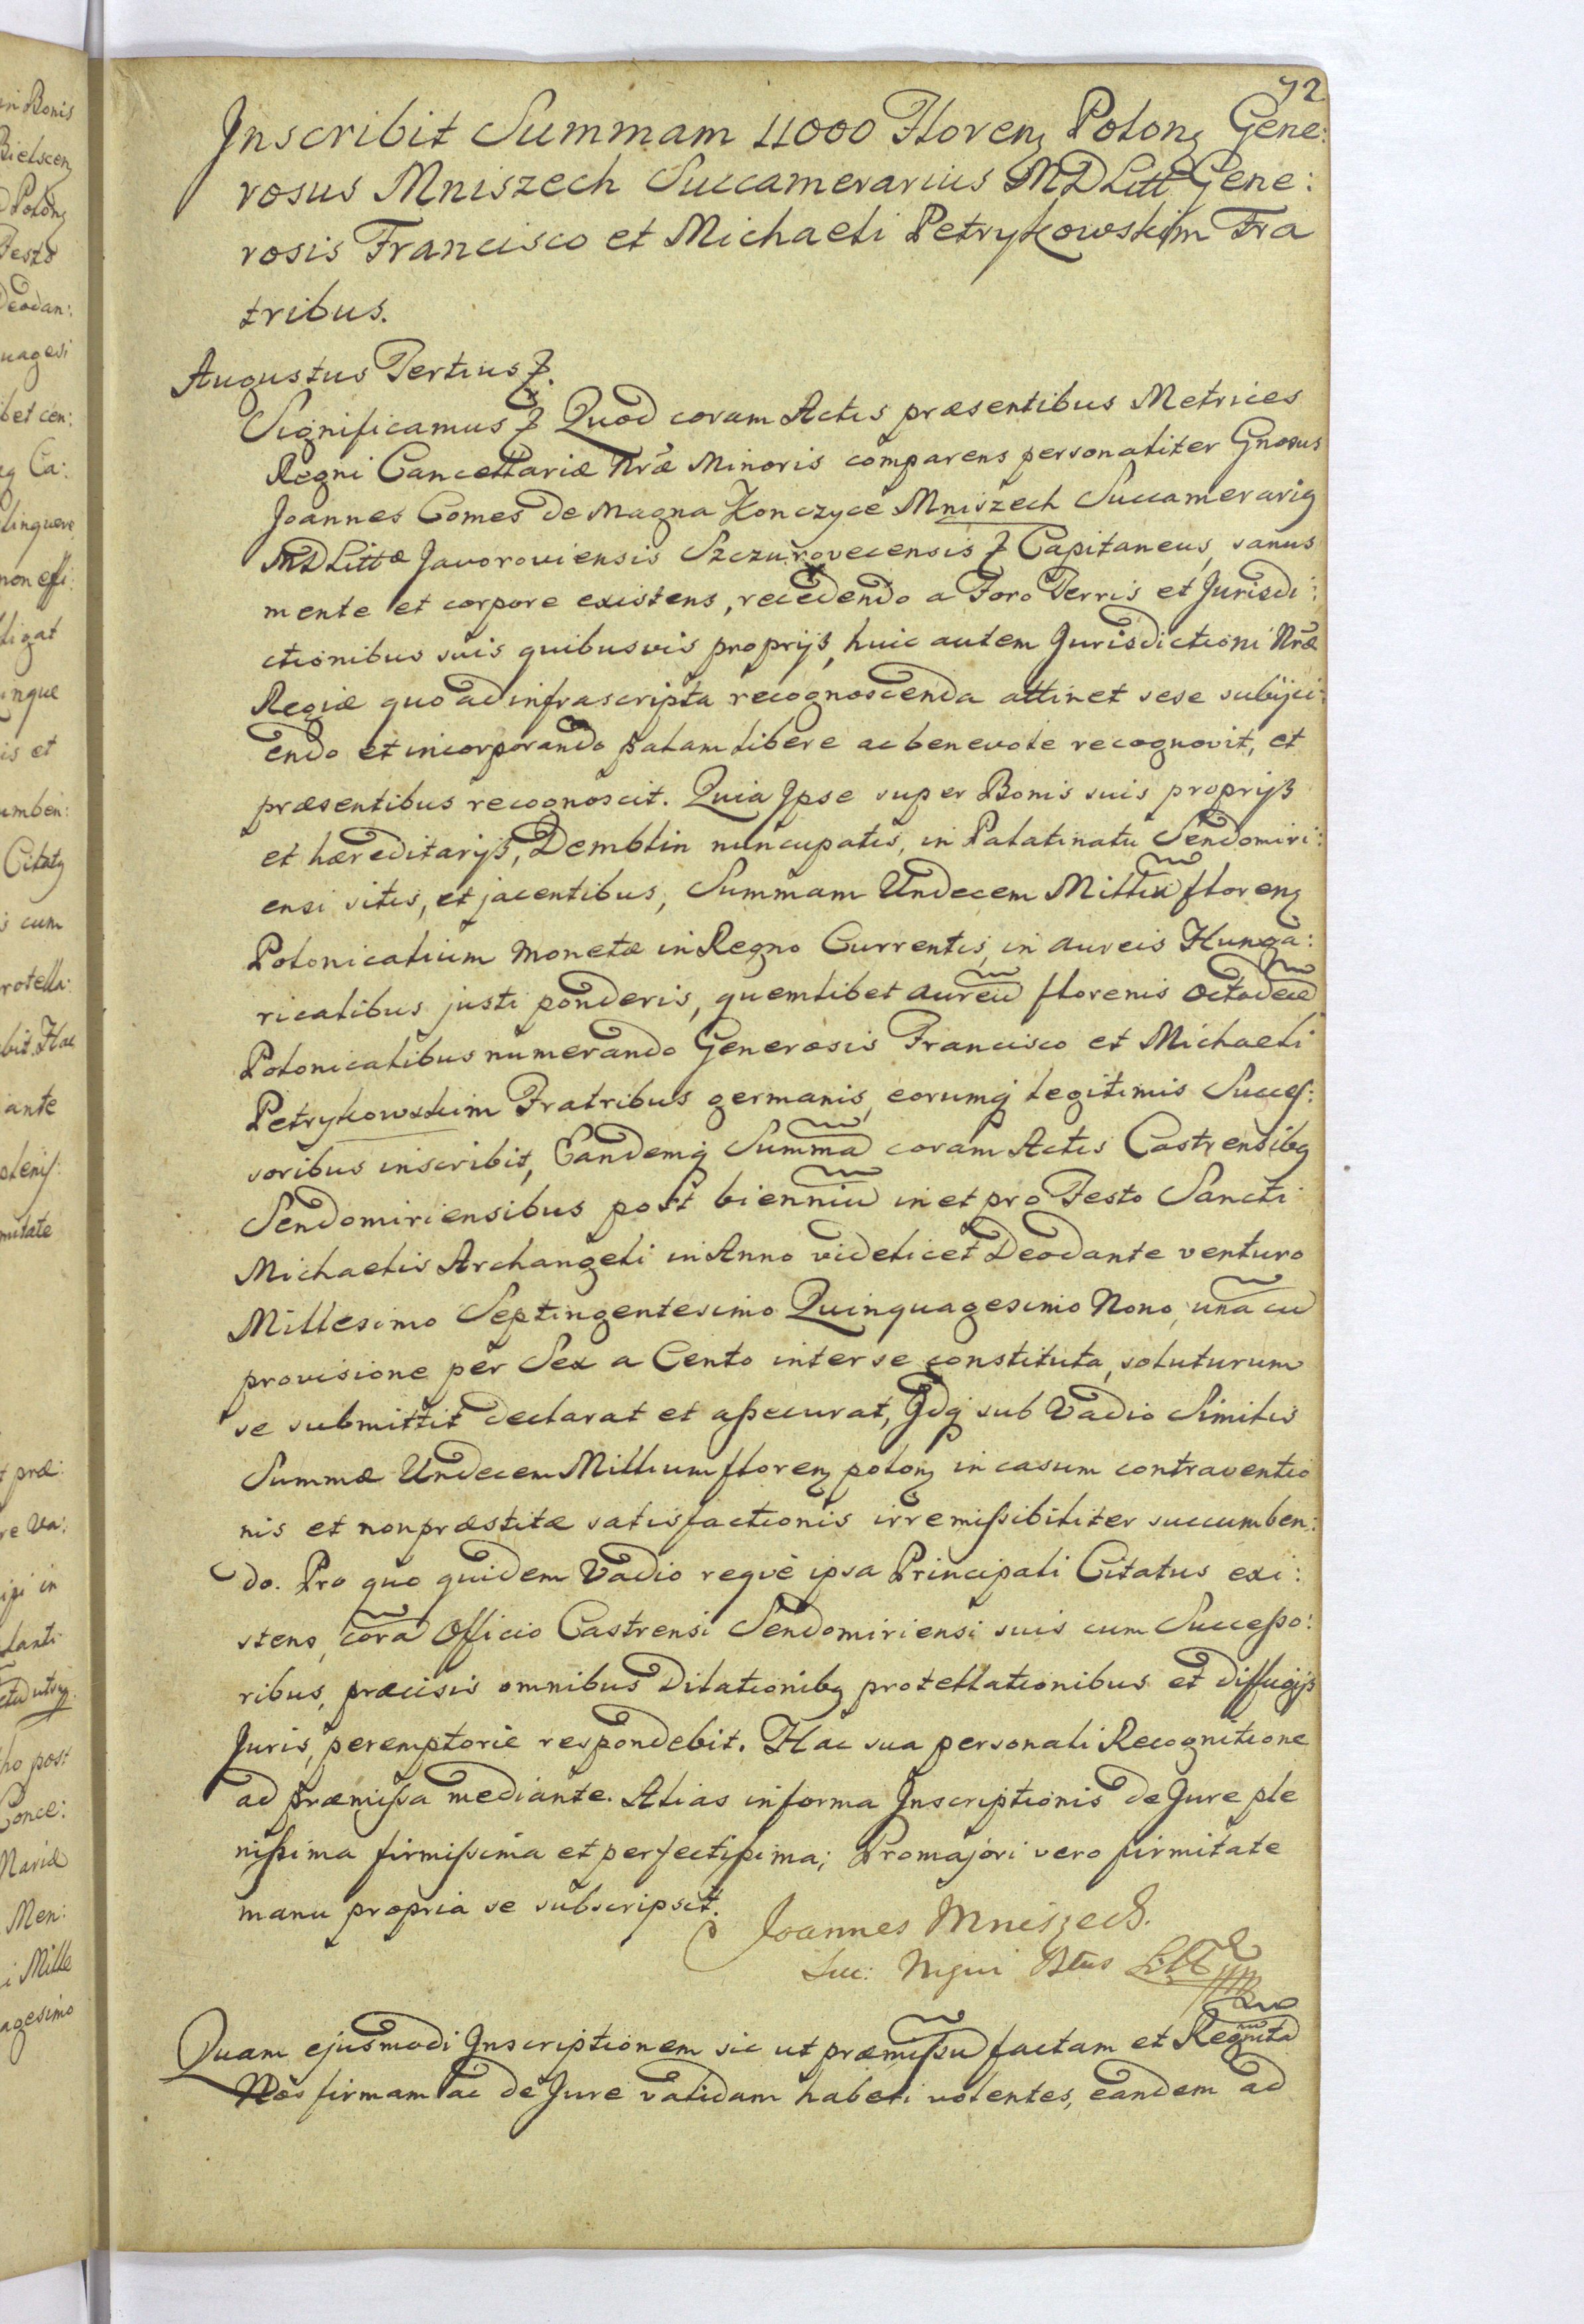 72
Inscribit Summam 11000 Floren: Polon: Gene:
rosus Mniszech Succamerarius MDLitt: Gene:
rosis Francisco et Michaeli Petrykowskim Fra
tribus.
Augustus Tertius &.
Significamus & Quod coram Actis præsentibus Metrices
Regni Cancellariæ Nræ Minoris comparens personaliter Gnosus
Joannes Comes de Magna Konczyce Mniszech Succamerarig
MDLittæ Javoroviensis Szczurovecensis & Capitaneus, sanus
mente et corpore existens, recedendo a Foro Terris et Jurisdi:
ctionibus suis quibusvis proprijs, huic autem Jurisdictioni Nræ
Regiæ quo ad infrascripta recognoscenda attinet sese subijci:
endo et incorporando palam libere ac benevole recognovit, et
præsentibus recognoscit. Quia Ipse super Bonis suis proprijs
et hæreditarijs, Demblin nuncupatis, in Palatinatu Sendomiri:
ensi sitis, et jacentibus, Summam Undecem Milliu floren:
Polonicalium monetæ in Regno Currentis, in aureis Hunga:
ricalibus justi ponderis, quemlibet aureu florenis octodece
Polonicalibus numerando Generosis Francisco et Michaeli
Petrykowskim Fratribus germanis, eorumq legitimis Succes:
soribus inscribit, Eandemq Summa coram Actis Castrensibg
Sendomiriensibus post bienniu in et pro Festo Sancti
Michaelis Archangeli in Anno videlicet Deodante venturo
Millesimo Septingentesimo Quinquagesimo Nono, una cu
provisione per Sex a Cento inter se constituta, soluturum
se submittit declarat et assecurat, Idq sub Vadio Similis
Summæ Undecem Millium floren: polon: in casum contraventio
nis et non præstitæ satisfactionis irremissibiliter succumben:
do. Pro quo quidem Vadio reque ipsa Principali Citatus exi:
stens, cora Officio Castrensi Sendomiriensi suis cum Successo:
ribus, præcisis omnibus Dilationibg protellationibus et diffugijs
Juris, peremptorie respondebit. Hac sua personali Recognitione
ad præmissa mediante. Alias in forma Inscriptionis de Jure ple
nissima firmissima et perfectissima; Pro majori vero firmitate
manu propria se subscripsit.
Joannes Mniszech.
Suc:
Quam ejusmodi Inscriptionem sic ut præmissu factam et Regnita
Nos firmam ac de Jure validam haberi volentes, eandem ad